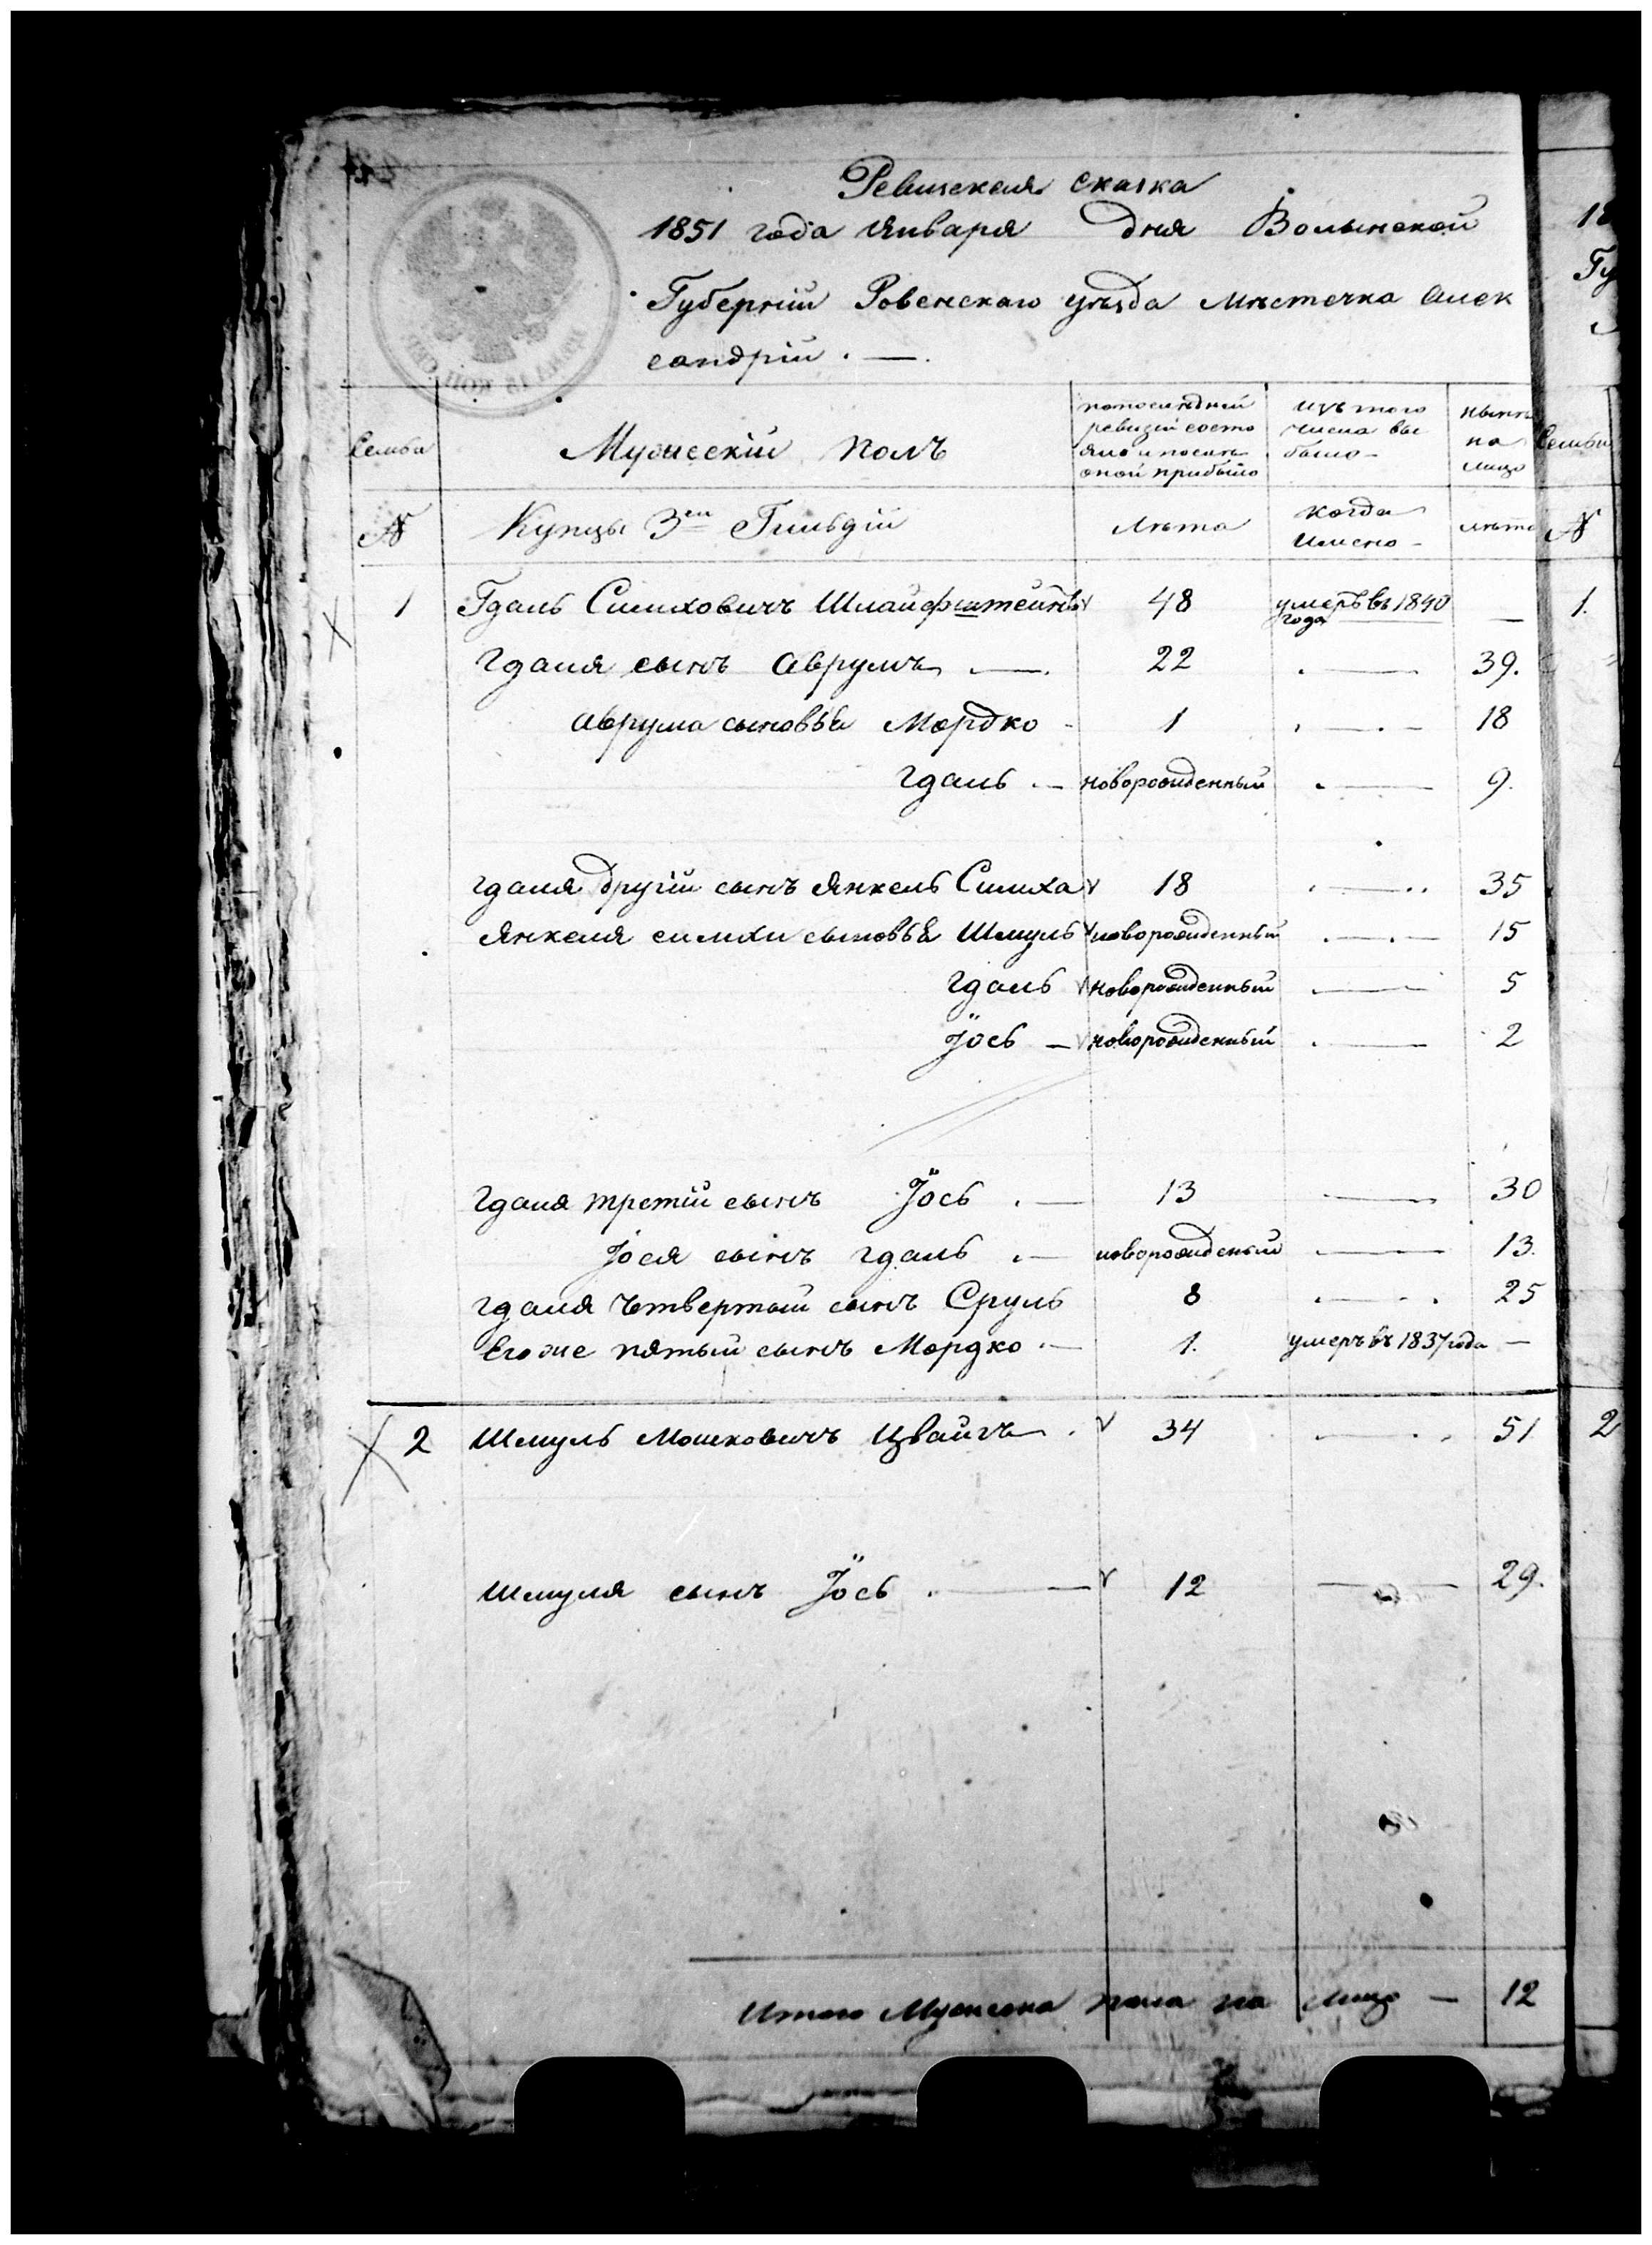 Ревизская сказка
1851 года января дня Волынской
Губерніи Ровенскаго уѣзда мѣстечка Алек
сандріи . —
Семьи
Мужескій полъ
попослѣдней ревизіи состо яло и послѣ оной прибыло
изъ того числа вы было —
нынѣ на лицо
Семьи
№
Купцы 3ей Гильдіи
лѣта
когда имено —
лѣта
№
1 Гдаль Симховичъ Шлайфштейнъ 48 умеръ въ 1840 года —
1.
Гдаля сынъ Аврумъ — 22 — 39.
Аврума сыновья Мордко - 1 — 18
Гдаль — новорожденный — 9.
Гдаля другій сынъ Янкель Симха 18 — 35
Янкеля Симхи сыновья Шмуль новорожденный — 15
Гдаль новорожденный — 5
Іось — новорожденный — 2
Гдаля третій сынъ Іось — 13 — 30
Іося сынъ Гдаль — новорожденый — 13.
Гдаля четвертый сынъ Сруль 8 — 25
Его же пятый сынъ Мордко — 1. умеръ въ 1837 года —
2 Шмуль Мошковичъ Цвайгъ 34 — 51
2
Шмуля сынъ Іось — 12 — 29.
Итого Мужеска пола на лицо — 12